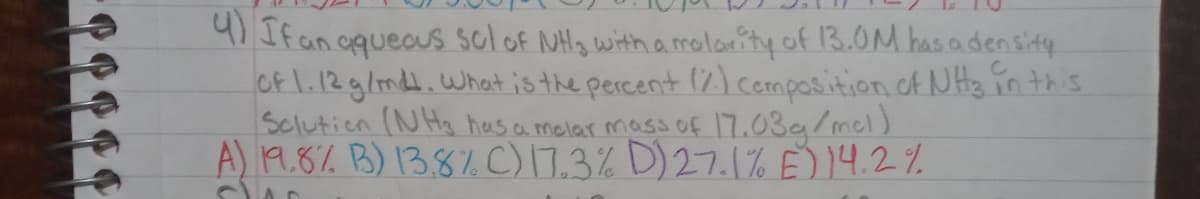 4) If an aqueous sol of NH3 with a molarity of 13.0M has a density
of 1.12 g/mL. What is the percent (%) composition of NH3 in this
Solution (NH3 has a molar mass of 17.03g/mol)
A) 19.8% B) 13.8% C) 17.3% D) 27.1% E) 14.2%